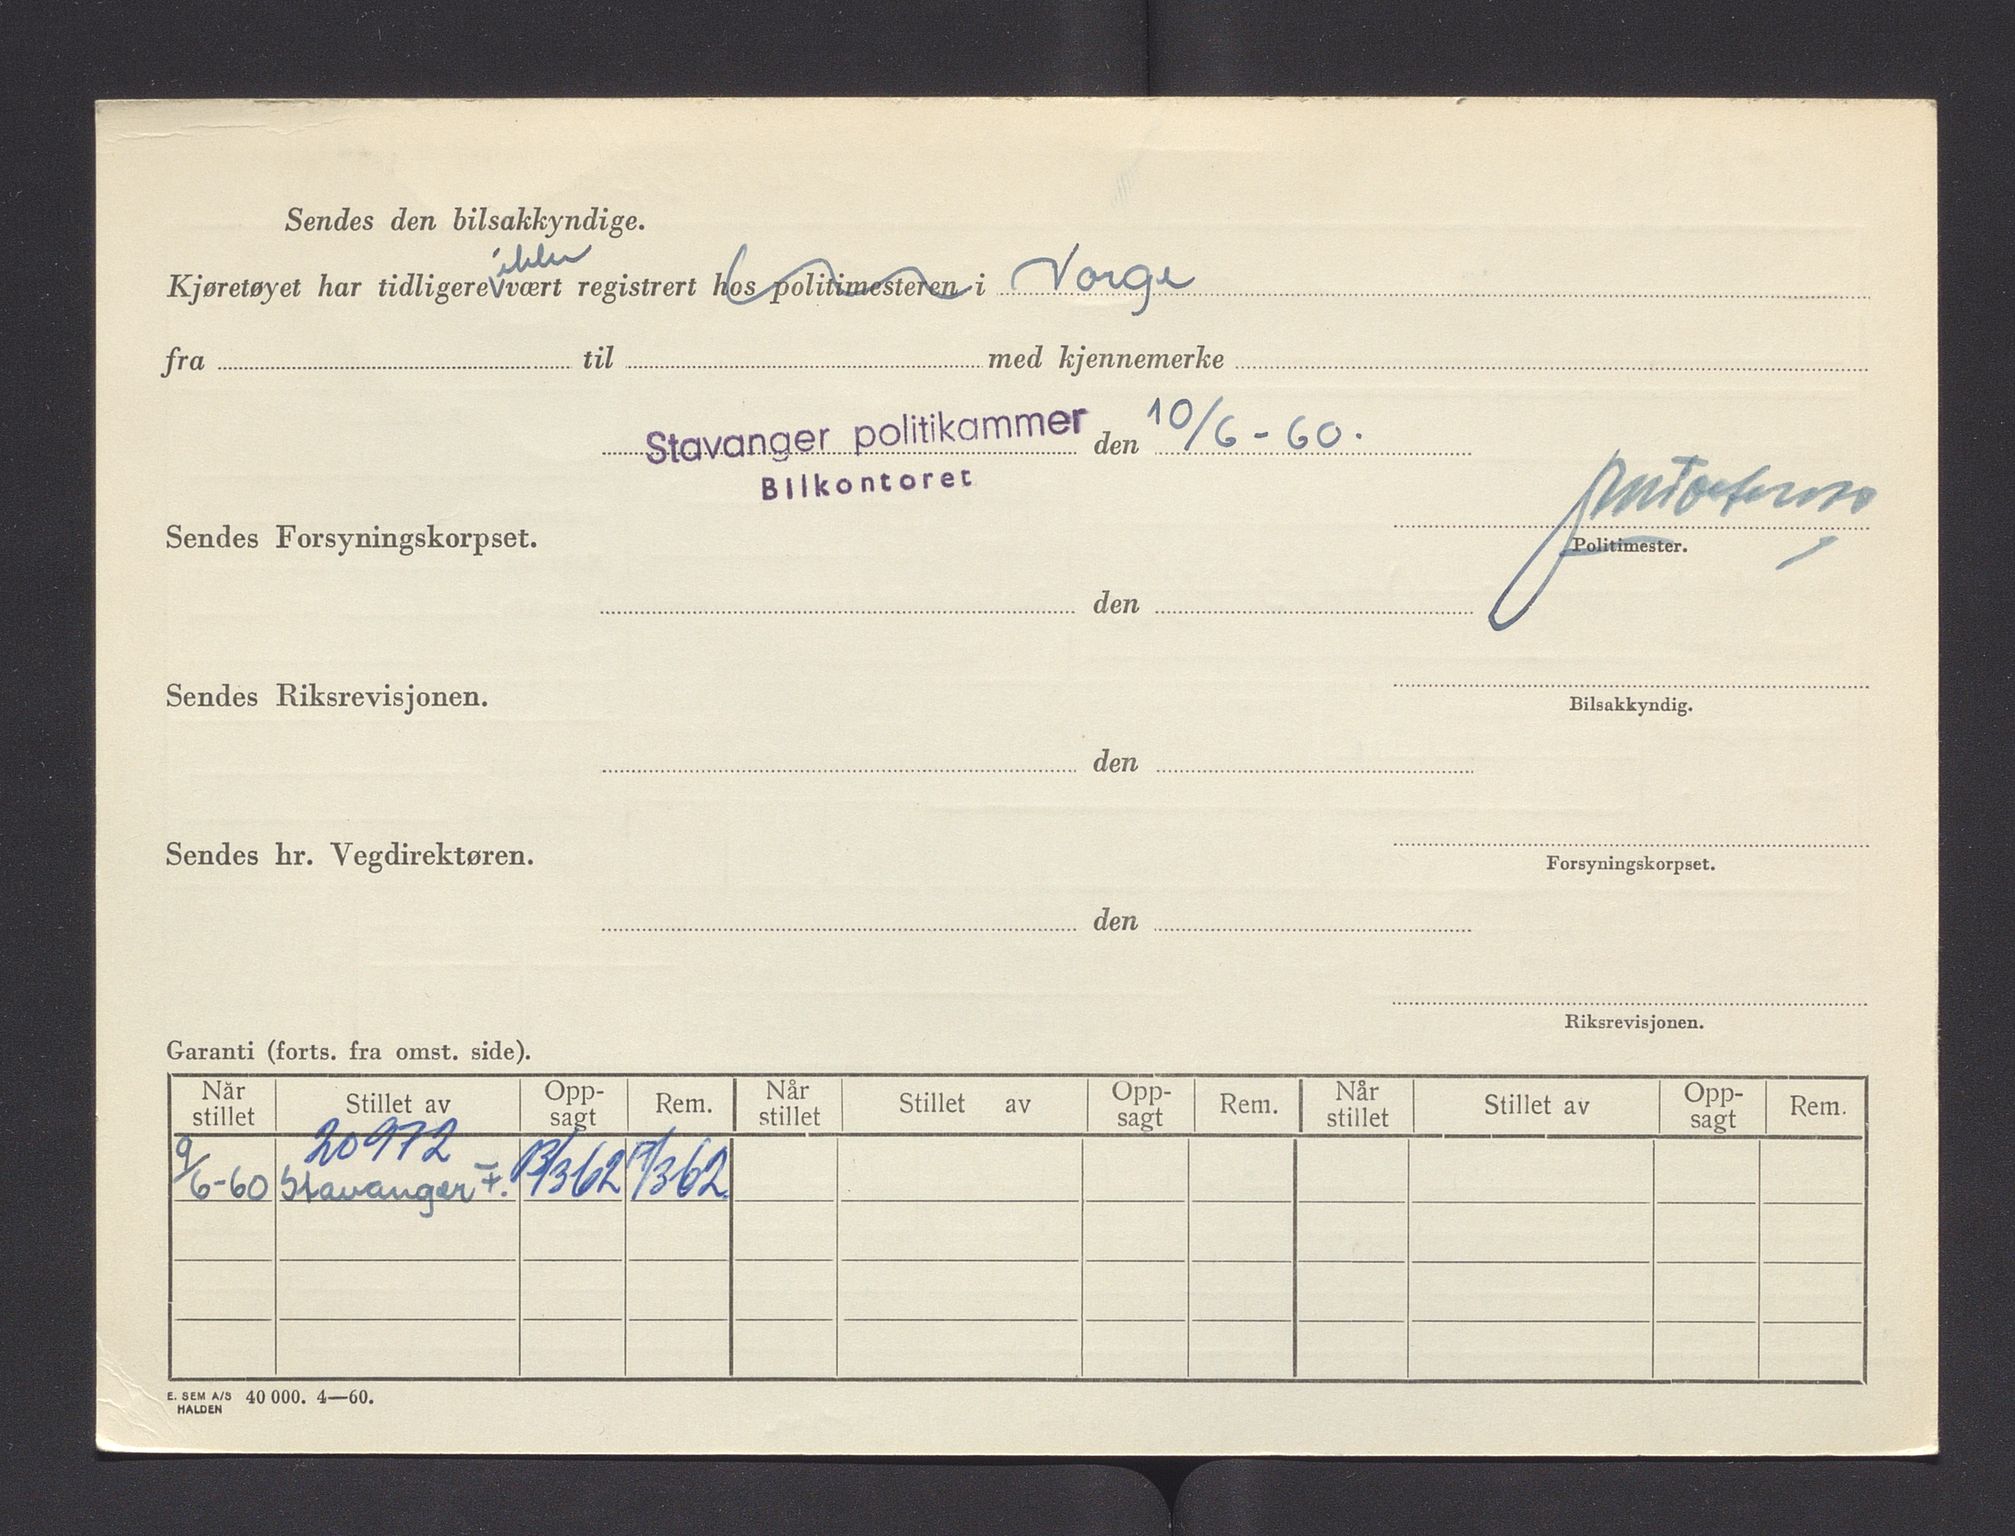 Sendes den bilsakkyndige.
Kjøretøyet har tidligere ikke vært registrert hos politimesteren i Norge
fra til med kjennemerke
Stavanger politikammer den 10/6-60.
Bilkontoret
Sendes Forsyningskorpset.
Politimester.
den
Sendes Riksrevisjonen.
Bilsakkyndig.
den
Sendes hr. Vegdirektøren.
Forsyningskorpset.
den
Riksrevisjonen.
Garanti (forts. fra omst. side).
Når stillet Stillet av Opp-sagt Rem. Når stillet Stillet av Opp-sagt Rem. Når stillet Stillet av Opp-sagt Rem.
20972
9/6-60 Stavanger F. 13/3 62 /3 62
E. SEM A/S HALDEN 40 000. 4—60.